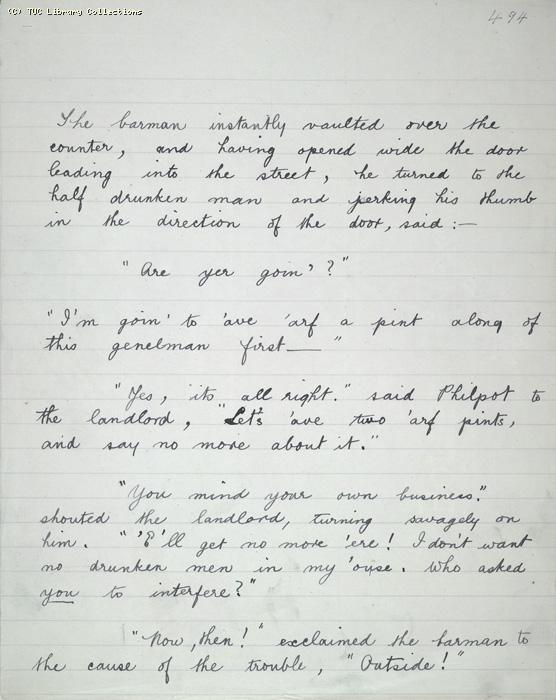 (C) TUC Library Collections
494
The barman instantly vaulted over the
counter, and having opened wide the door
leading into the street, he turned to the
half drunken man and jerking his thumb
in the direction of the door, said :—
"Are yer goin' ?"
"I'm goin' to 'ave 'arf a pint along of
this genelman first— "
"Yes, it's all right." said Philpot to
the landlord, "Let's 'ave two 'arf pints,
and say no more about it."
"You mind your own business."
shouted the landlord, turning savagely on
him. "'E'll get no more 'ere! I don't want
no drunken men in my 'ouse. Who asked
you to interfere?"
"Now, then!" exclaimed the barman to
the cause of the trouble, "Outside!"